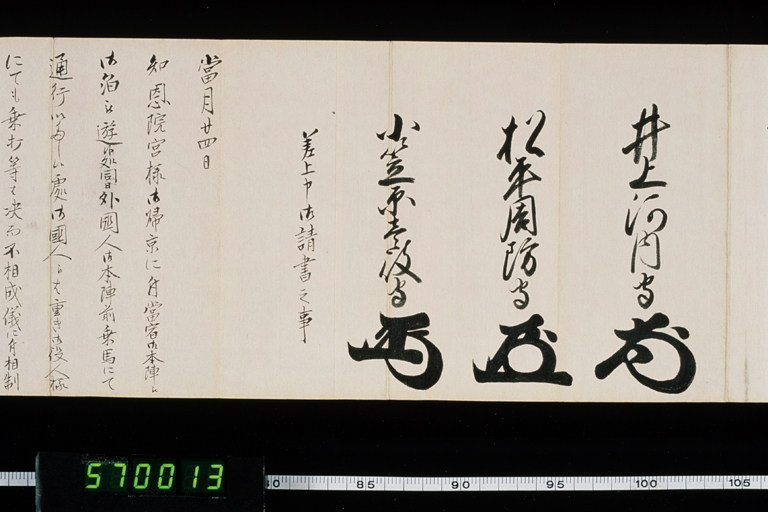 井上河内守
松平周防守
小笠原壱岐守
差上申御請書之事
當月廿四日
知恩院宮様御帰京に付當宿御本陣に
御泊被遊同外國人御本陣前乗馬にて
通行いたし處御國人にても重き御役人様
にても乗打等は決而不相成儀に付相制
570013
85
90
95
100
105